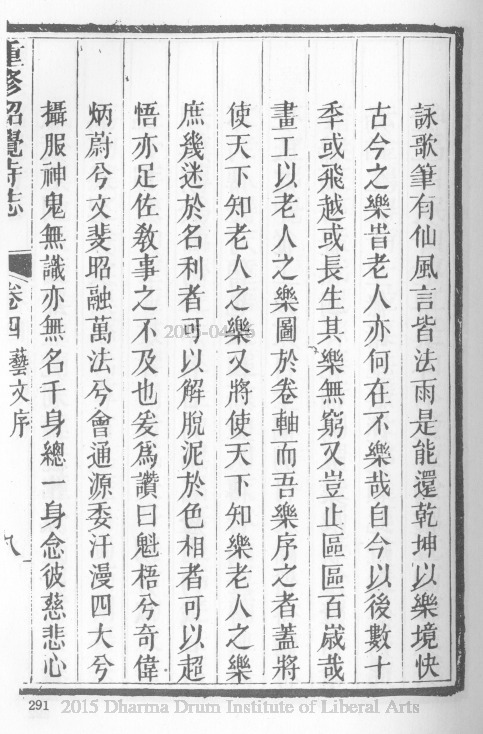 詠歌筆有仙風言皆法雨是能還乾坤以樂境快
古今之樂昔老人亦何在不樂哉自今以後數十
年或飛越或長生其樂無窮又豈止區區百歲哉
畫工以老人之樂圖於卷軸而吾樂序之者蓋將
使天下知老人之樂又將使天下知樂老人之樂
庶幾迷於名利者可以解脫泥於色相者可以超
悟亦足佐教事之不及也爰為讚曰魁梧兮奇偉
炳蔚兮文斐昭融萬法兮會通源委汗漫四大兮
攝服神鬼無識亦無名千身總一身念彼慈悲心
重修昭覺寺志
卷四 藝文序
八
291 2015 Dharma Drum Institute of Liberal Arts